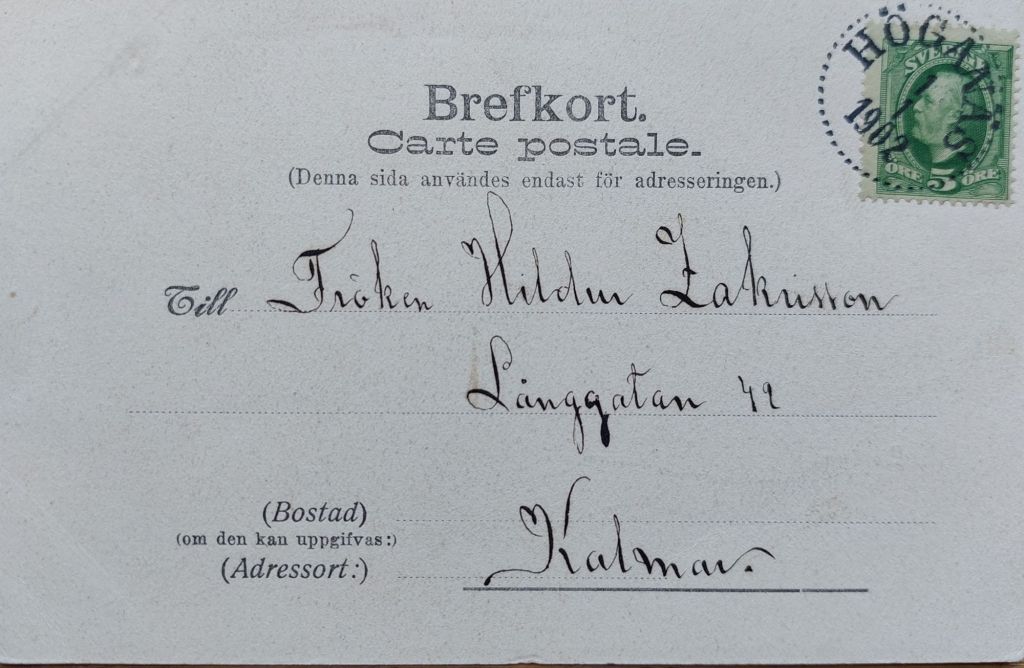 Brefkort.
Carte postale.
(Denna sida användes endast för adresseringen.)
HÖGANÄS
1
1
1902
SVERIGE
ÖRE 5 ÖRE
Till Fröken Hildur Zakrisson
Långgatan 42
(Bostad)
(om den kan uppgifvas:)
(Adressort:) Kalmar.